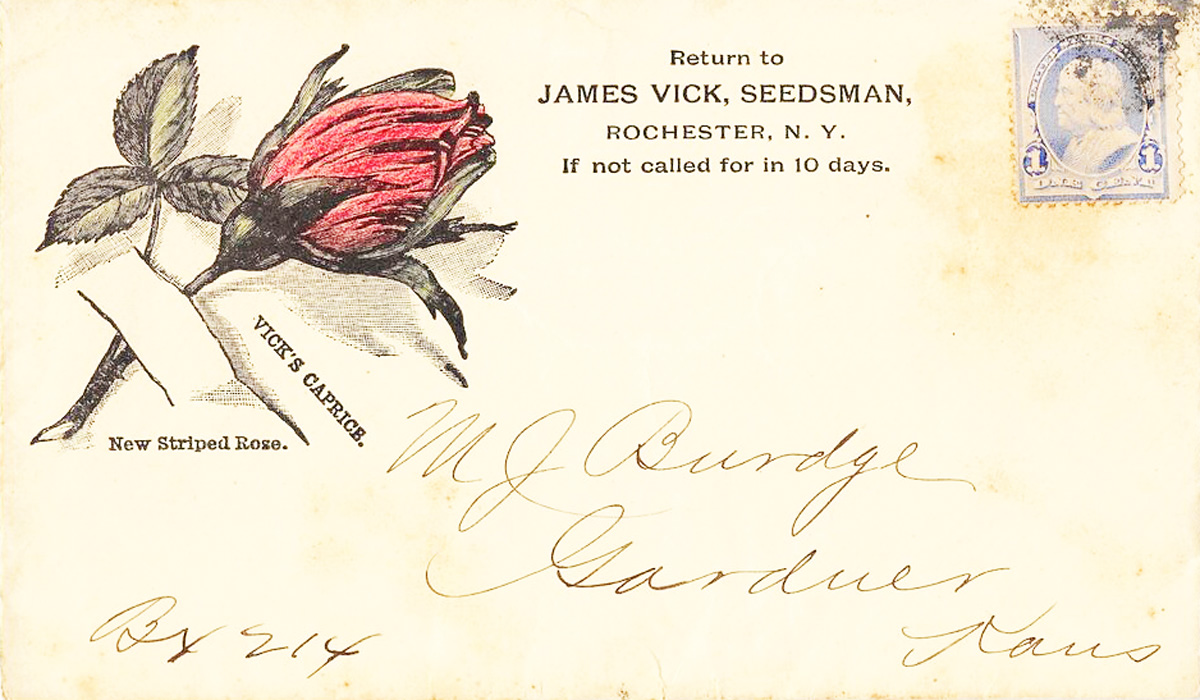 Return to
JAMES VICK, SEEDSMAN,
ROCHESTER, N. Y.
If not called for in 10 days.
1 1
VICK'S CAPRICE.
New Striped Rose.
M J Burdge
Gardner
Bx 214
Kans